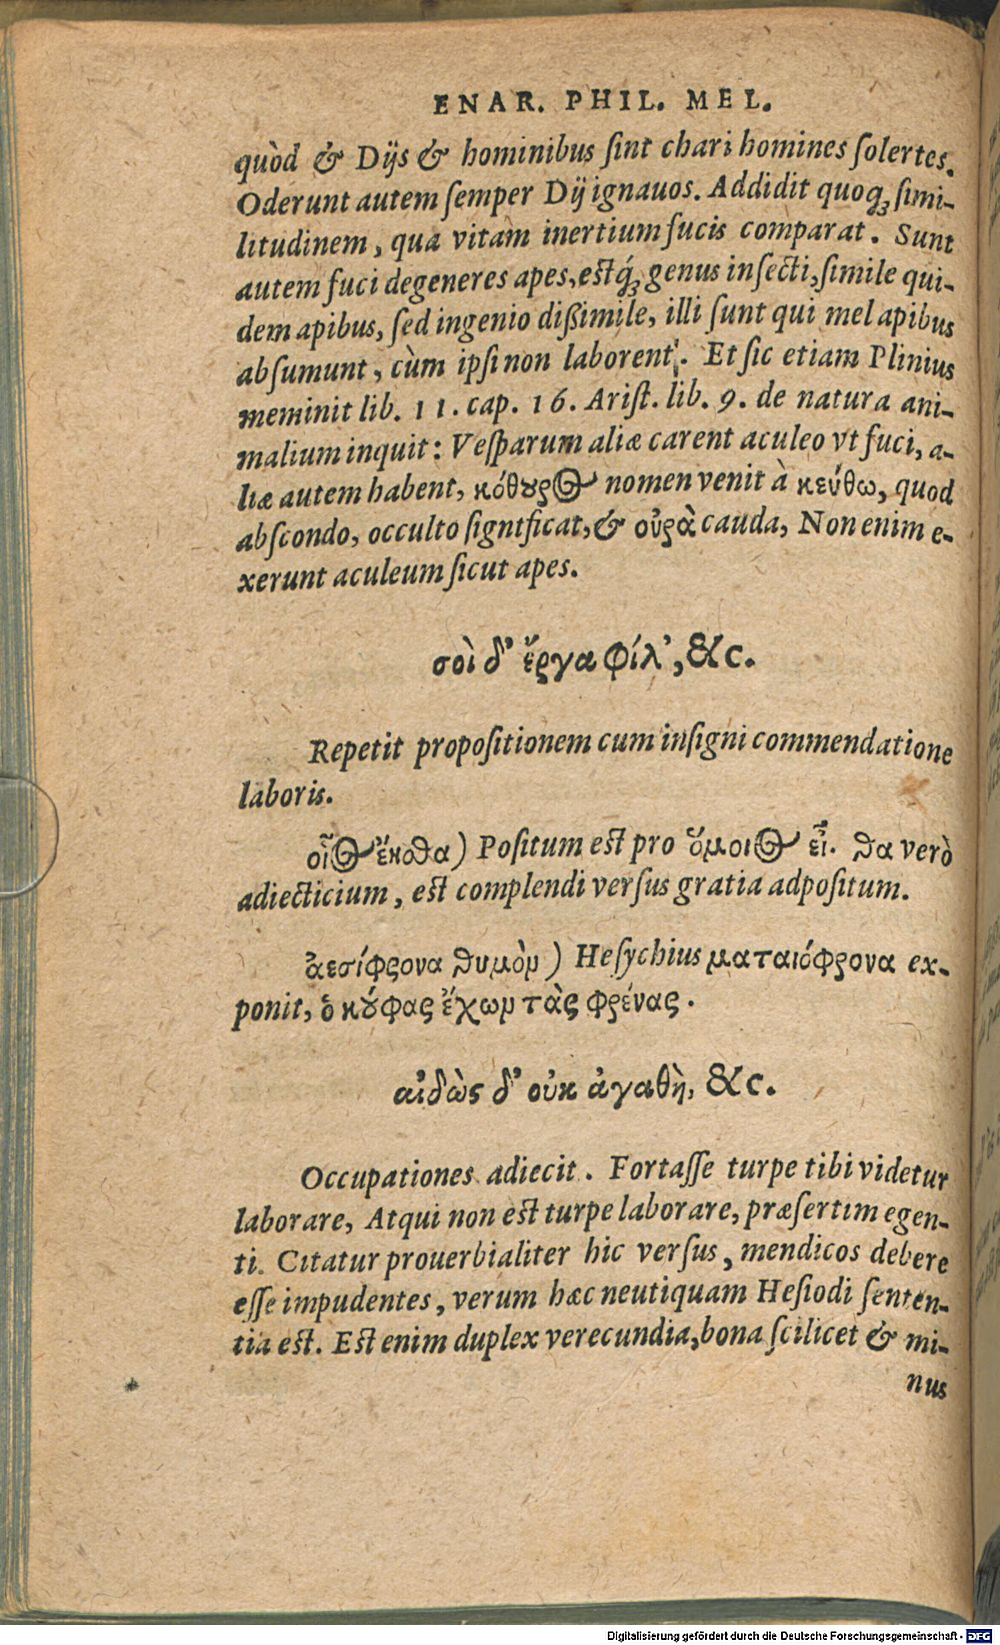 ENAR. PHIL. MEL.
quòd & Dijs & hominibus ſint chari homines ſolertes.
Oderunt autem ſemper Dij ignauos. Addidit quoqꝫ ſimi-
litudinem, qua vitam inertium fucis comparat. Sunt
autem fuci degeneres apes, estqꝫ́ genus inſecti, ſimile qui-
dem apibus, ſed ingenio dißimile, illi ſunt qui mel apibus
abſumunt, cùm ipſi non laborent. Et ſic etiam Plinius
meminit lib. 11. cap. 16. Ariſt. lib. 9. de natura ani-
malium inquit: Veſparum aliæ carent aculeo vt fuci, a-
liæ autem habent, κόθουρος nomen venit à κεύθω, quod
abſcondo, occulto ſigntficat, & οὐρὰ cauda, Non enim e-
xerunt aculeum ſicut apes.
σοὶ δ’ ἔργα φίλ’, &c.
Repetit propoſitionem cum inſigni commendatione
laboris.
οἷος ἔησθα) Poſitum est pro ὅμοιος εἶ. θα verò
adiecticium, est complendi verſus gratia adpoſitum.
ἀεσίφρονα θυμὸν) Heſychius ματαιόφρονα ex-
ponit, ὁ κούφας ἔχων τὰς φρένας.
αἰδὼς δ’ οὐκ ἀγαθὴ, &c.
Occupationes adiecit. Fortaſſe turpe tibi videtur
laborare, Atqui non est turpe laborare, præſertim egen-
ti. Citatur prouerbialiter hic verſus, mendicos debere
eſſe impudentes, verum hæc neutiquam Heſiodi ſenten-
tia est. Est enim duplex verecundia, bona ſcilicet & mi-
nus
Digitalisierung gefördert durch die Deutsche Forschungsgemeinschaft - DFG